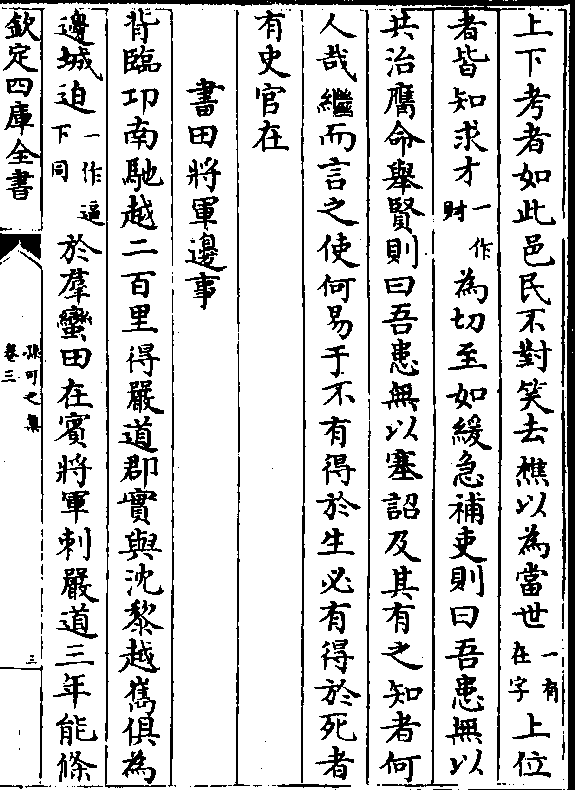 上下考者如此邑民不對笑去樵以為當世一有在字上位
者皆知求才一作財為切至如緩急補吏則曰吾患無以
共治膺命舉賢則曰吾患無以塞詔及其有之知者何
人哉繼而言之使何易于不有得於生必有得於死者
有史官在
書田將軍邊事
背臨卭南馳越二百里得嚴道郡實與沈黎越嶲俱為
邊城迫一作逼下同於羣蠻田在賓將軍刺嚴道三年能條
欽定四庫全書
孫可之集
卷三
三